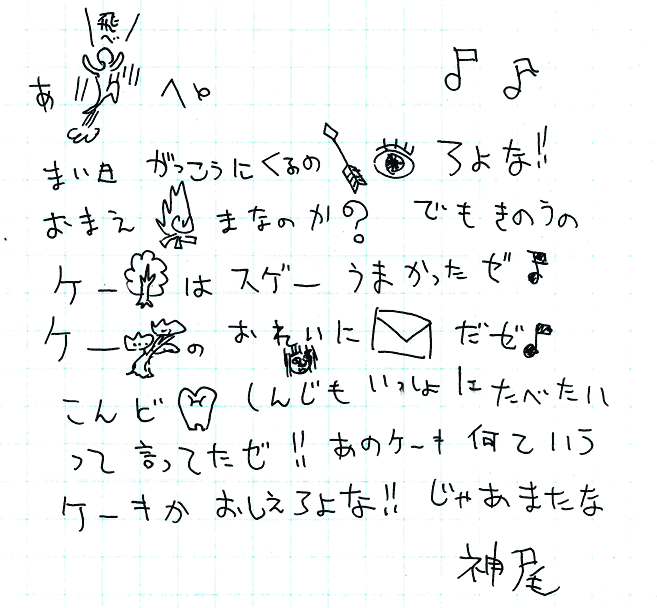 飛べ
あ へ
♪ ♪
まい日 がっこうにくるの ろよな!!
おまえ まなのか? でも きのうの
ケー は スゲー うまかったゼ♪
ケー の おれいに だゼ♪
こんど しんじも いっしょに たべたい
って 言ってたゼ!! あのケーキ 何ていう
ケーキか おしえろよな!! じゃあまたな
神尾